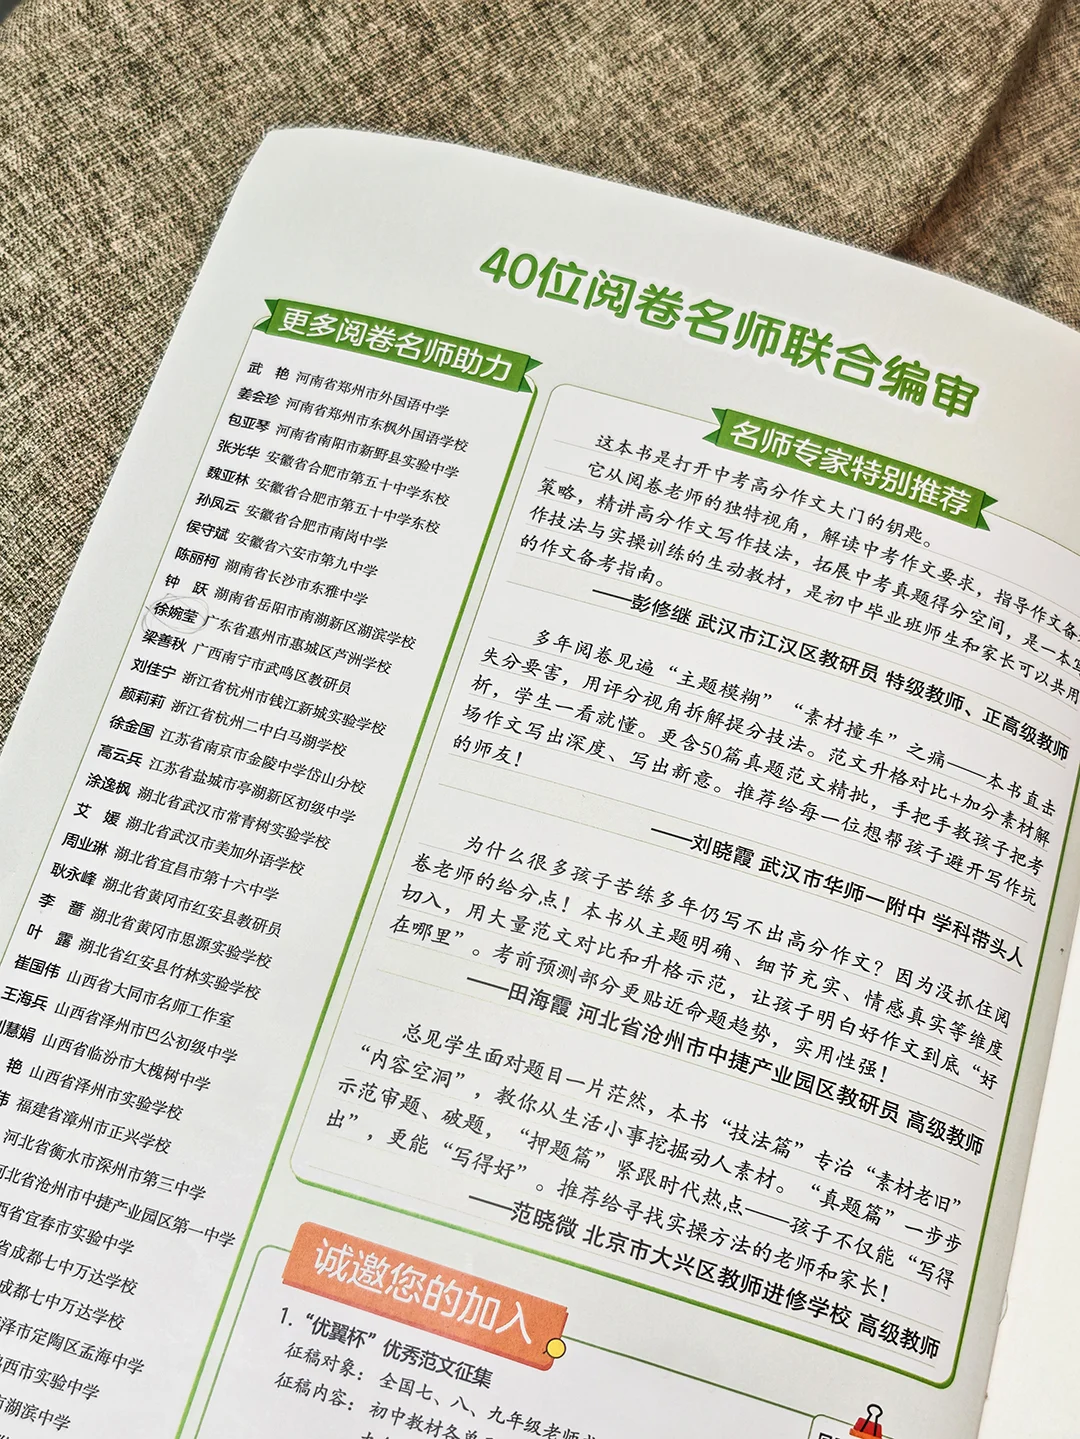 40位阅卷名师联合编审
更多阅卷名师助力
武 艳 河南省郑州市外国语中学
姜会珍 河南省郑州市东枫外国语学校
包亚琴 河南省南阳市新野县实验中学
张光华 安徽省合肥市第五十中学东校
魏亚林 安徽省合肥市第五十中学东校
孙凤云 安徽省合肥市南岗中学
侯守斌 安徽省六安市第九中学
陈丽柯 湖南省长沙市东雅中学
钟 跃 湖南省岳阳市南湖新区湖滨学校
徐婉莹 广东省惠州市惠城区芦洲学校
梁善秋 广西南宁市武鸣区教研员
刘佳宁 浙江省杭州市钱江新城实验学校
颜莉莉 浙江省杭州二中白马湖学校
徐金国 江苏省南京市金陵中学岱山分校
高云兵 江苏省盐城市亭湖新区初级中学
涂逸枫 湖北省武汉市常青树实验学校
艾 媛 湖北省武汉市美加外语学校
周业琳 湖北省宜昌市第十六中学
耿永峰 湖北省黄冈市红安县教研员
李 蔷 湖北省黄冈市思源实验学校
叶 露 湖北省红安县竹林实验学校
崔国伟 山西省大同市名师工作室
王海兵 山西省泽州市巴公初级中学
慧娟 山西省临汾市大槐树中学
艳 山西省泽州市实验学校
伟 福建省漳州市正兴学校
河北省衡水市深州市第三中学
河北省沧州市中捷产业园区第一中学
西省宜春市实验中学
省成都七中万达学校
成都七中万达学校
泽市定陶区孟海中学
西市实验中学
市湖滨中学
名师专家特别推荐
这本书是打开中考高分作文大门的钥匙。
它从阅卷老师的独特视角，解读中考作文要求，指导作文备考
策略，精讲高分作文写作技法，拓展中考真题得分空间，是一本写
作技法与实操训练的生动教材，是初中毕业班师生和家长可以共用
的作文备考指南。
——彭修继 武汉市江汉区教研员 特级教师、正高级教师
多年阅卷见遍“主题模糊”“素材撞车”之痛——本书直击
失分要害，用评分视角拆解提分技法。范文升格对比+加分素材解
析，学生一看就懂。更含50篇真题范文精批，手把手教孩子把考
场作文写出深度、写出新意。推荐给每一位想帮孩子避开写作坑
的师友！
——刘晓霞 武汉市华师一附中 学科带头人
为什么很多孩子苦练多年仍写不出高分作文？因为没抓住阅
卷老师的给分点！本书从主题明确、细节充实、情感真实等维度
切入，用大量范文对比和升格示范，让孩子明白好作文到底“好
在哪里”。考前预测部分更贴近命题趋势，实用性强！
——田海霞 河北省沧州市中捷产业园区教研员 高级教师
总见学生面对题目一片茫然，本书“技法篇”专治“素材老旧”
“内容空洞”，教你从生活小事挖掘动人素材。“真题篇”一步步
示范审题、破题，“押题篇”紧跟时代热点——孩子不仅能“写得
出”，更能“写得好”。推荐给寻找实操方法的老师和家长！
——范晓微 北京市大兴区教师进修学校 高级教师
诚邀您的加入
1.“优翼杯”优秀范文征集
征稿对象：全国七、八、九年级老师
征稿内容：初中教材各单